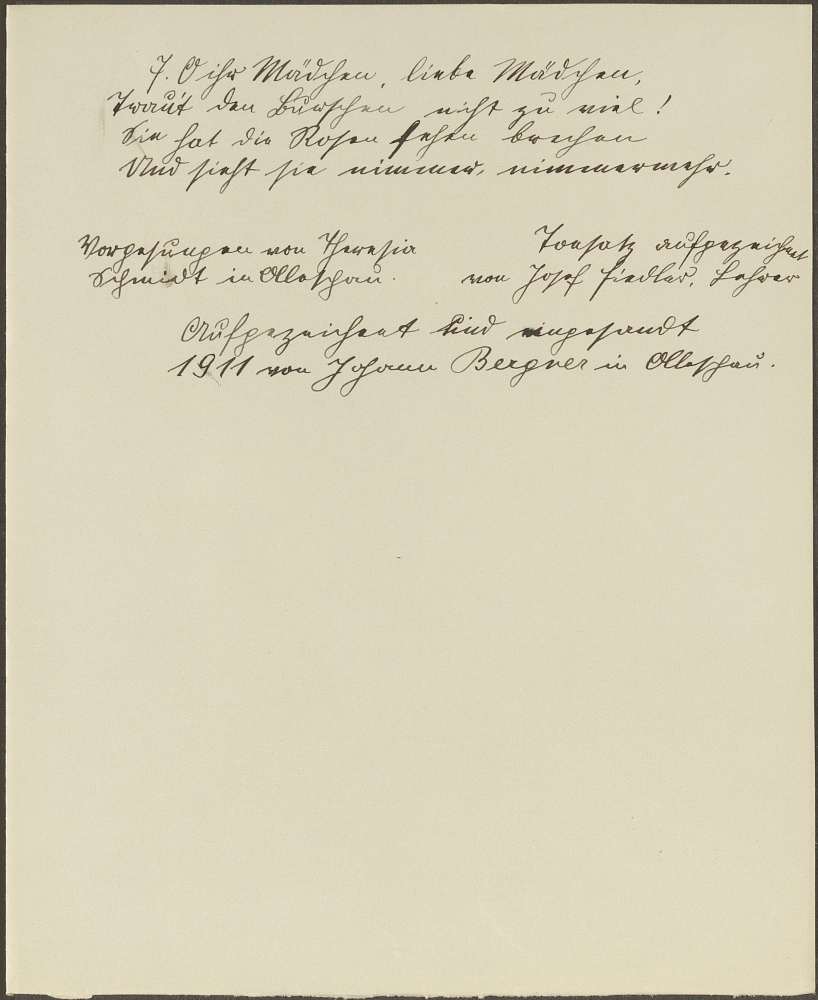 7. O ihr Mädchen, liebe Mädchen,
Traut den Burschen nicht zu viel!
Sie hat die Rosen sehen brechen
Und sieht sie nimmer, nimmermehr.
Vorgesungen von Theresia
Schmidt in Olleschau.
Tonsatz aufgezeichnet
von Josef Fiedler, Lehrer
Aufgezeichnet und eingesandt
1911 von Johann Bergner in Olleschau.